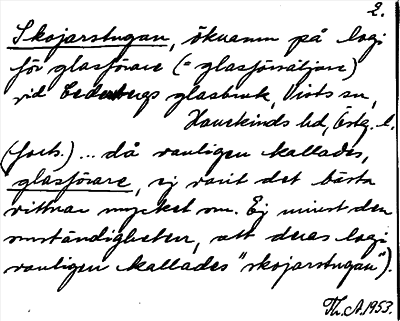 2.
Skojarstugan, öknamn på logi
för glasförare (= glasförsäljare)
vid Cedersbergs glasbruk, Vists sn,
Hanekinds hd, Östg. l.
(forts.) ... då vanligen kallades,
glasförare, ej varit det bästa
vittnar mycket om. Ej minst den
omständigheten, att deras logi
vanligen kallades "skojarstugan").
Th. A. 1953.